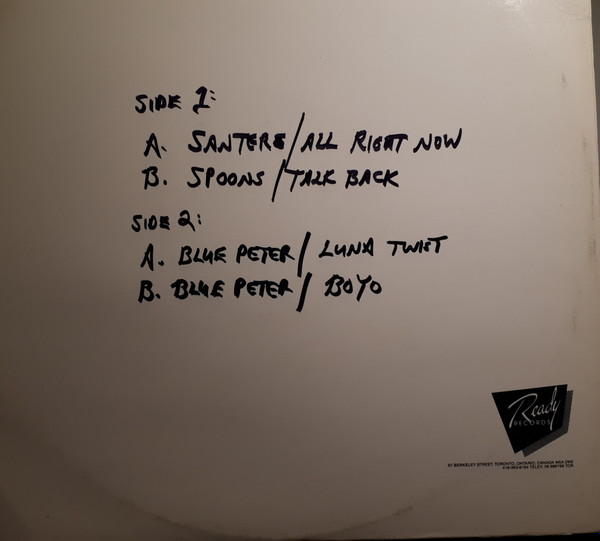 SIDE 1:
A. SANTERS/ALL RIGHT NOW
B. SPOONS/TALK BACK
SIDE 2:
A. BLUE PETER/LUNA TWIST
B. BLUE PETER/BOYO
Ready
RECORDS
BERKELEY STREET, TORONTO, ONTARIO, CANADA M5A 2W5